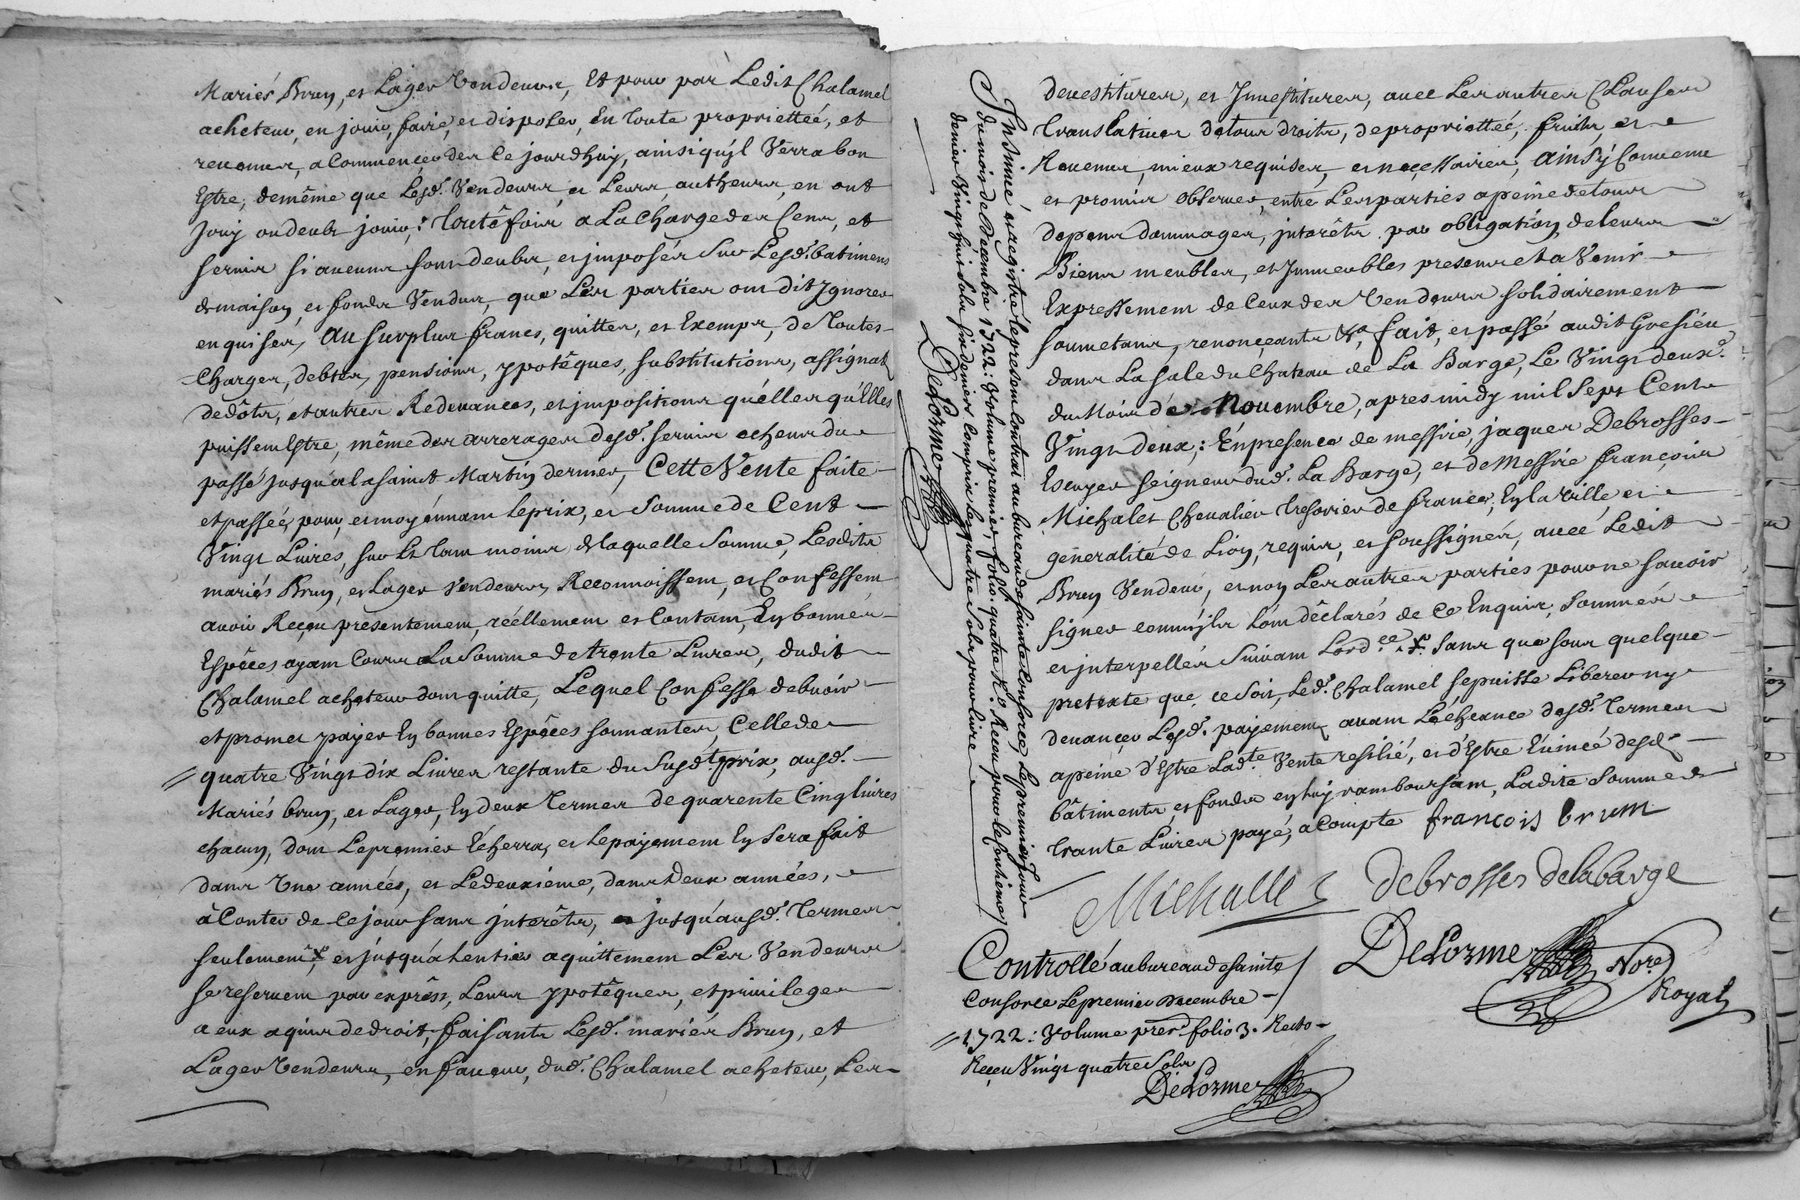 Mariés Brun, et Lager Vendeurs, Et pour par Ledit Chalamel
acheteur, en jouir, faire, et disposer, En toute proprietteé, et
revenus, a Commencer dez ce jourdhuy, ainsi qu'jl Verra bon
Estre, deméme que Lesd.t Vendeurs, et Leurs autheurs, en ont
Jouy ou deubt jouir; toutêfois a La charge des Cens, et
servis si aucuns sont deubs, et jmposés sur Lesd.t batimens
de maison, et fonds Vendus, que Les parties ont dit Jgnorer
enquises, Au surplus francs, quittes, et Exempts, de toutes
Charges, debtes, pensions, ypotêques, substitutions, assignats
dedôts, et autres Redevances, et jmpositions quélles qu'Elles
puissent Estre, même des arrerages desd.t servis echeus du
passé jusqu'a la saint Martin dernier, Cette Vente faite
et passée, pour, et moyennant le prix, et Somme de Cent
Vingt Livres, sur Et tant moins de laquelle Somme, Lesdits
mariés Brun, et Lager Vendeurs Reconnoissent, et Confessent
avoir Reçeu presentement, réellement et Contant, En bonnes
Espêces ayant Cours La Somme de trente Livres, dudit
Chalamel acheteur dont quitte, Lequel Confesse debvoir
et promet payer En bonnes Espêces sonnantes, Celle de
quatre Vingt dix Livres restante du Susd.t prix, ausd.
Mariés brun, et Lager, En deux termes de quarente Cinq livres
chacun, dont Le premier Echerra, et Le payement En Sera fait
dans Une années, et Le deuxiéme, dans Deux années,
â Conter de Ce jour sans jnterêts, jusqu'ausd. termes
seulement, et jusqu'a l'entier aquittement Les Vendeurs
se reservent par exprês, Leurs ypotêques, et privileges
a eux aquis de droit, faisants Lesd. mariés Brun, et
Lager Vendeurs, en faveur, dud. Chalamel acheteur, Les
Jnsinué et registré le present Contrat au bureau de Sainte Consorce, Le premier Jour
du mois de Decembre 1722: Volume premier, folio quatre R.o Reçu pour le Centiéme
denier Vingt huit sols six deniers Compris les quatre sols pour livre
DeLorme
devestitures, et Jnvestitures, avec Les autres Clauses
translatives de tous droits, de proprietteé, fruits et
Revenus, mieux requises, et neçessaires, Ainsy Convenu
et promis observer, entre Les parties a peine de tous
depens dommages, jnterêts par obligation, de leurs
Biens meubles, et Jmmeubles presens et a Venir
Expressement de Ceux des Vendeurs solidairement
soumetans, renonçeants &a, fait, et passé audit Gresieu
dans La Sale du Chateau de La Barge, Le Vingt deux.e
du Mois de Novembre, apres midy mil Sept Cents
Vingt deux; En presence de messire, jaques Debrosses
Escuyer seigneur dud. La Barge, et de Messire françois
Michalet Chevalier tresorier de france, En la Ville et
géneralité de Lion, requis, et Soussignés, avec Ledit
Brun Vendeur, et non Les autres parties pour ne savoir
signer comm'jls L'ont dêclarés de Ce Enquis, Sommés
et jnterpellés Suivant L'ord.ce Sans que sous quelque
pretexte que ce soit, Led.t Chalamel se puisse Liberer ny
devançer Lesd. payements avant L'écheance desd. termes
apeine d'Estre Lad.te Vente resilié, et d'Estre Evincé desd.
bâtiments, et fonds en luy remboursant, Ladite Somme de
trante Livres payé, a Compte françois brum
Michallet Debrosses delabarge
Controllé au bureau de Sainte
Consorce Le premier Decembre
1722: Volume prer. folio 3. Recto
Reçeu Vingt quatre Sols
DeLorme
DeLorme Nore
Royal